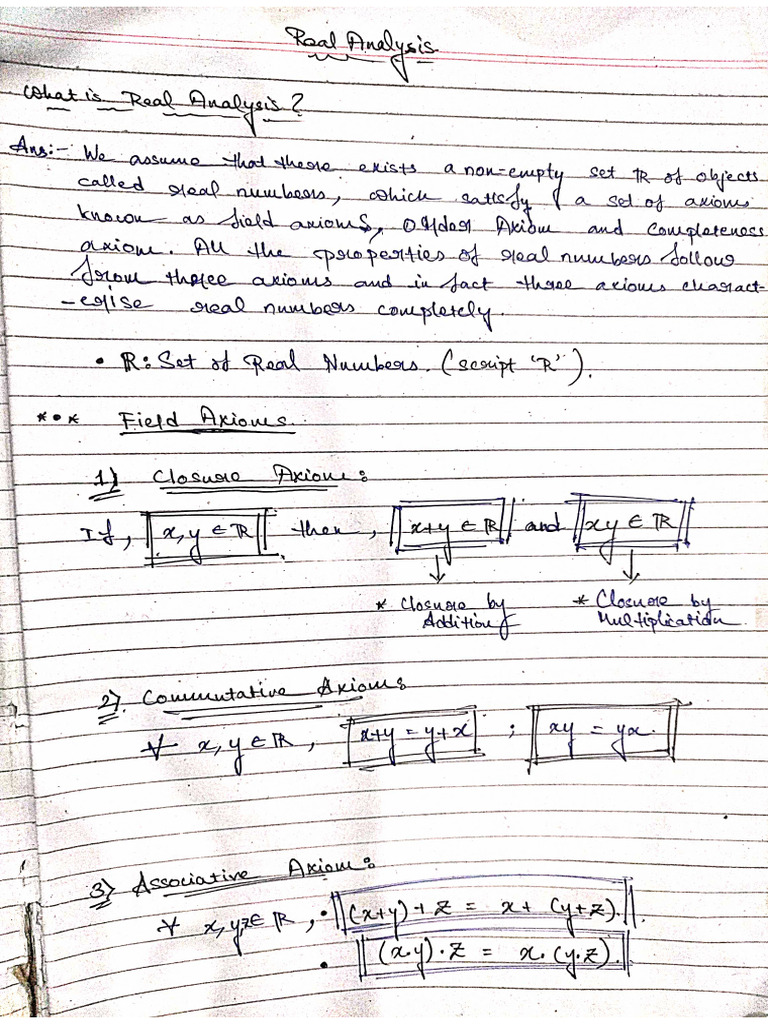 Real Analysis
What is Real Analysis?
Ans:- We assume that there exists a non-empty set ℝ of objects
called real numbers, which satisfy a set of axioms
known as field axioms, Order Axiom and Completeness
axiom. All the properties of real numbers follow
from these axioms and in fact these axioms charact-
-erise real numbers completely.
• ℝ: Set of Real Numbers. (script 'R').
*•* Field Axioms.
1) Closure Axiom:
If, x, y ∈ ℝ then, x+y ∈ ℝ and xy ∈ ℝ
↓ ↓
* Closure by * Closure by
Addition Multiplication.
2). Commutative Axiom:
∀ x, y ∈ ℝ, x+y = y+x ; xy = yx.
3) Associative Axiom:
∀ x, y, z ∈ ℝ, • (x+y)+z = x+(y+z).
• (x.y).z = x.(y.z).